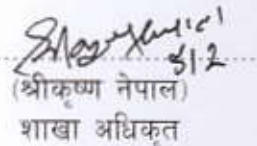 ५।२
(श्रीकृष्ण नेपाल)
शाखा अधिकृत